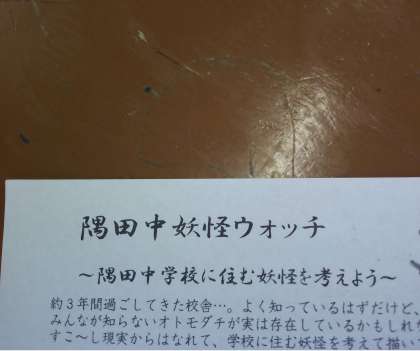 隅田中妖怪ウォッチ
～隅田中学校に住む妖怪を考えよう～
約3年間過ごしてきた校舎…。よく知っているはずだけど、
みんなが知らないオトモダチが実は存在しているかもしれ
すこ～し現実からはなれて、学校に住む妖怪を考えて描い